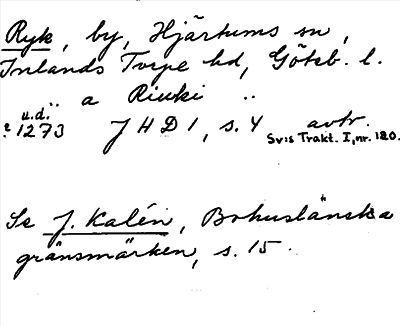 Ryk, by, Hjärtums sn,
Inlands Torpe hd, Göteb. l.
.. a Riuki ..
u.d.
?1273 JHD 1, s. 4 avtr.
Sv:s Trakt. I, nr. 120.
Se J. Kalén, Bohuslänska
gränsmärken, s. 15.